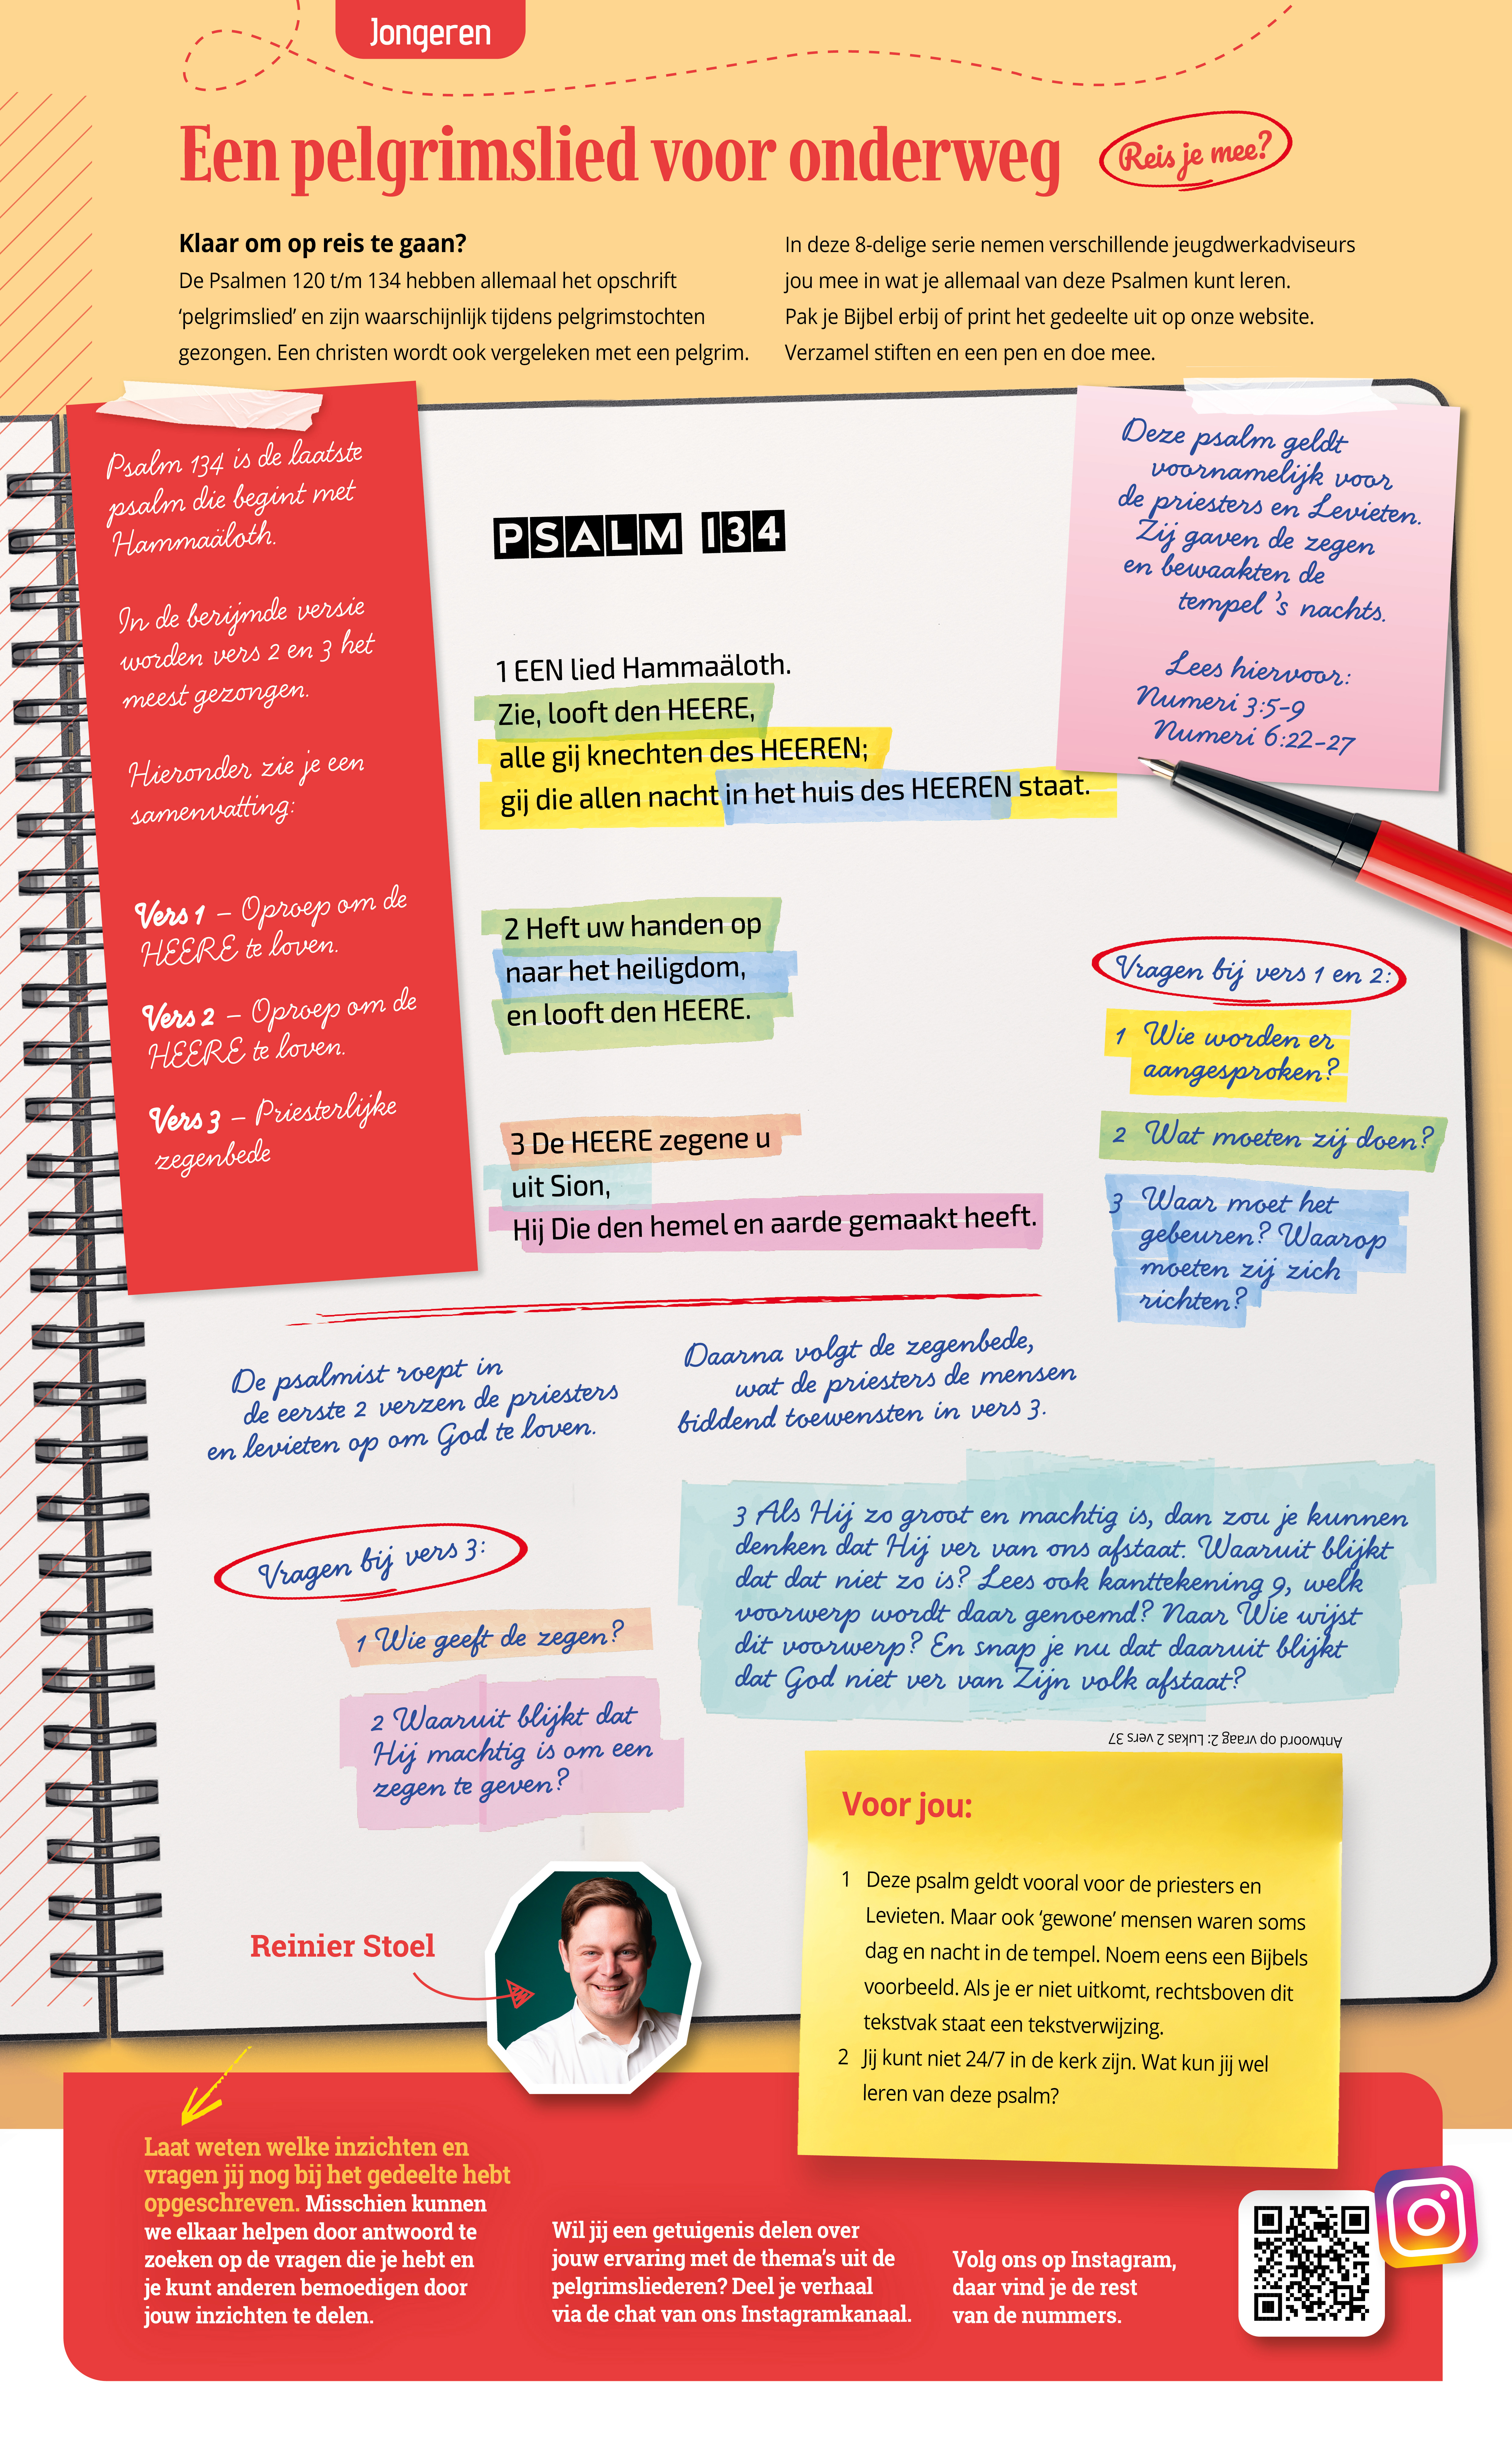 Jongeren
Een pelgrimslied voor onderweg
Reis je mee?
Klaar om op reis te gaan?
De Psalmen 120 t/m 134 hebben allemaal het opschrift
‘pelgrimslied’ en zijn waarschijnlijk tijdens pelgrimstochten
gezongen. Een christen wordt ook vergeleken met een pelgrim.
In deze 8-delige serie nemen verschillende jeugdwerkadviseurs
jou mee in wat je allemaal van deze Psalmen kunt leren.
Pak je Bijbel erbij of print het gedeelte uit op onze website.
Verzamel stiften en een pen en doe mee.
Psalm 134 is de laatste
psalm die begint met
Hammaäloth.
In de berijmde versie
worden vers 2 en 3 het
meest gezongen.
Hieronder zie je een
samenvatting:
Vers 1 – Oproep om de
HEERE te loven.
Vers 2 – Oproep om de
HEERE te loven.
Vers 3 – Priesterlijke
zegenbede
PSALM 134
1 EEN lied Hammaäloth.
Zie, looft den HEERE,
alle gij knechten des HEEREN;
gij die allen nacht in het huis des HEEREN staat.
2 Heft uw handen op
naar het heiligdom,
en looft den HEERE.
3 De HEERE zegene u
uit Sion,
Hij Die den hemel en aarde gemaakt heeft.
Deze psalm geldt
voornamelijk voor
de priesters en Levieten.
Zij gaven de zegen
en bewaakten de
tempel ’s nachts.
Lees hiervoor:
Numeri 3:5-9
Numeri 6:22-27
Vragen bij vers 1 en 2:
1 Wie worden er
aangesproken?
2 Wat moeten zij doen?
3 Waar moet het
gebeuren? Waarop
moeten zij zich
richten?
De psalmist roept in
de eerste 2 verzen de priesters
en levieten op om God te loven.
Daarna volgt de zegenbede,
wat de priesters de mensen
biddend toewensten in vers 3.
Vragen bij vers 3:
1 Wie geeft de zegen?
2 Waaruit blijkt dat
Hij machtig is om een
zegen te geven?
3 Als Hij zo groot en machtig is, dan zou je kunnen
denken dat Hij ver van ons afstaat. Waaruit blijkt
dat dat niet zo is? Lees ook kanttekening 9, welk
voorwerp wordt daar genoemd? Naar Wie wijst
dit voorwerp? En snap je nu dat daaruit blijkt
dat God niet ver van Zijn volk afstaat?
Antwoord op vraag 2: Lukas 2 vers 37
Voor jou:
1 Deze psalm geldt vooral voor de priesters en
Levieten. Maar ook ‘gewone’ mensen waren soms
dag en nacht in de tempel. Noem eens een Bijbels
voorbeeld. Als je er niet uitkomt, rechtsboven dit
tekstvak staat een tekstverwijzing.
2 Jij kunt niet 24/7 in de kerk zijn. Wat kun jij wel
leren van deze psalm?
Reinier Stoel
Laat weten welke inzichten en
vragen jij nog bij het gedeelte hebt
opgeschreven. Misschien kunnen
we elkaar helpen door antwoord te
zoeken op de vragen die je hebt en
je kunt anderen bemoedigen door
jouw inzichten te delen.
Wil jij een getuigenis delen over
jouw ervaring met de thema’s uit de
pelgrimsliederen? Deel je verhaal
via de chat van ons Instagramkanaal.
Volg ons op Instagram,
daar vind je de rest
van de nummers.